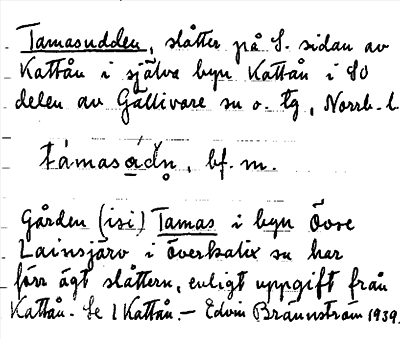 Tamasudden, slåtter på S. sidan av
Kattån i själva byn Kattån i SO
delen av Gällivare sn o. tg, Norrb. l.
támasadn̥, bf. m.
Gården (isi) Tamas i byn Övre
Lainsjärv i Överkalix sn har
förr ägt slåttern, enligt uppgift från
Kattån. Se 1 Kattån. — Edvin Brännström 1939.